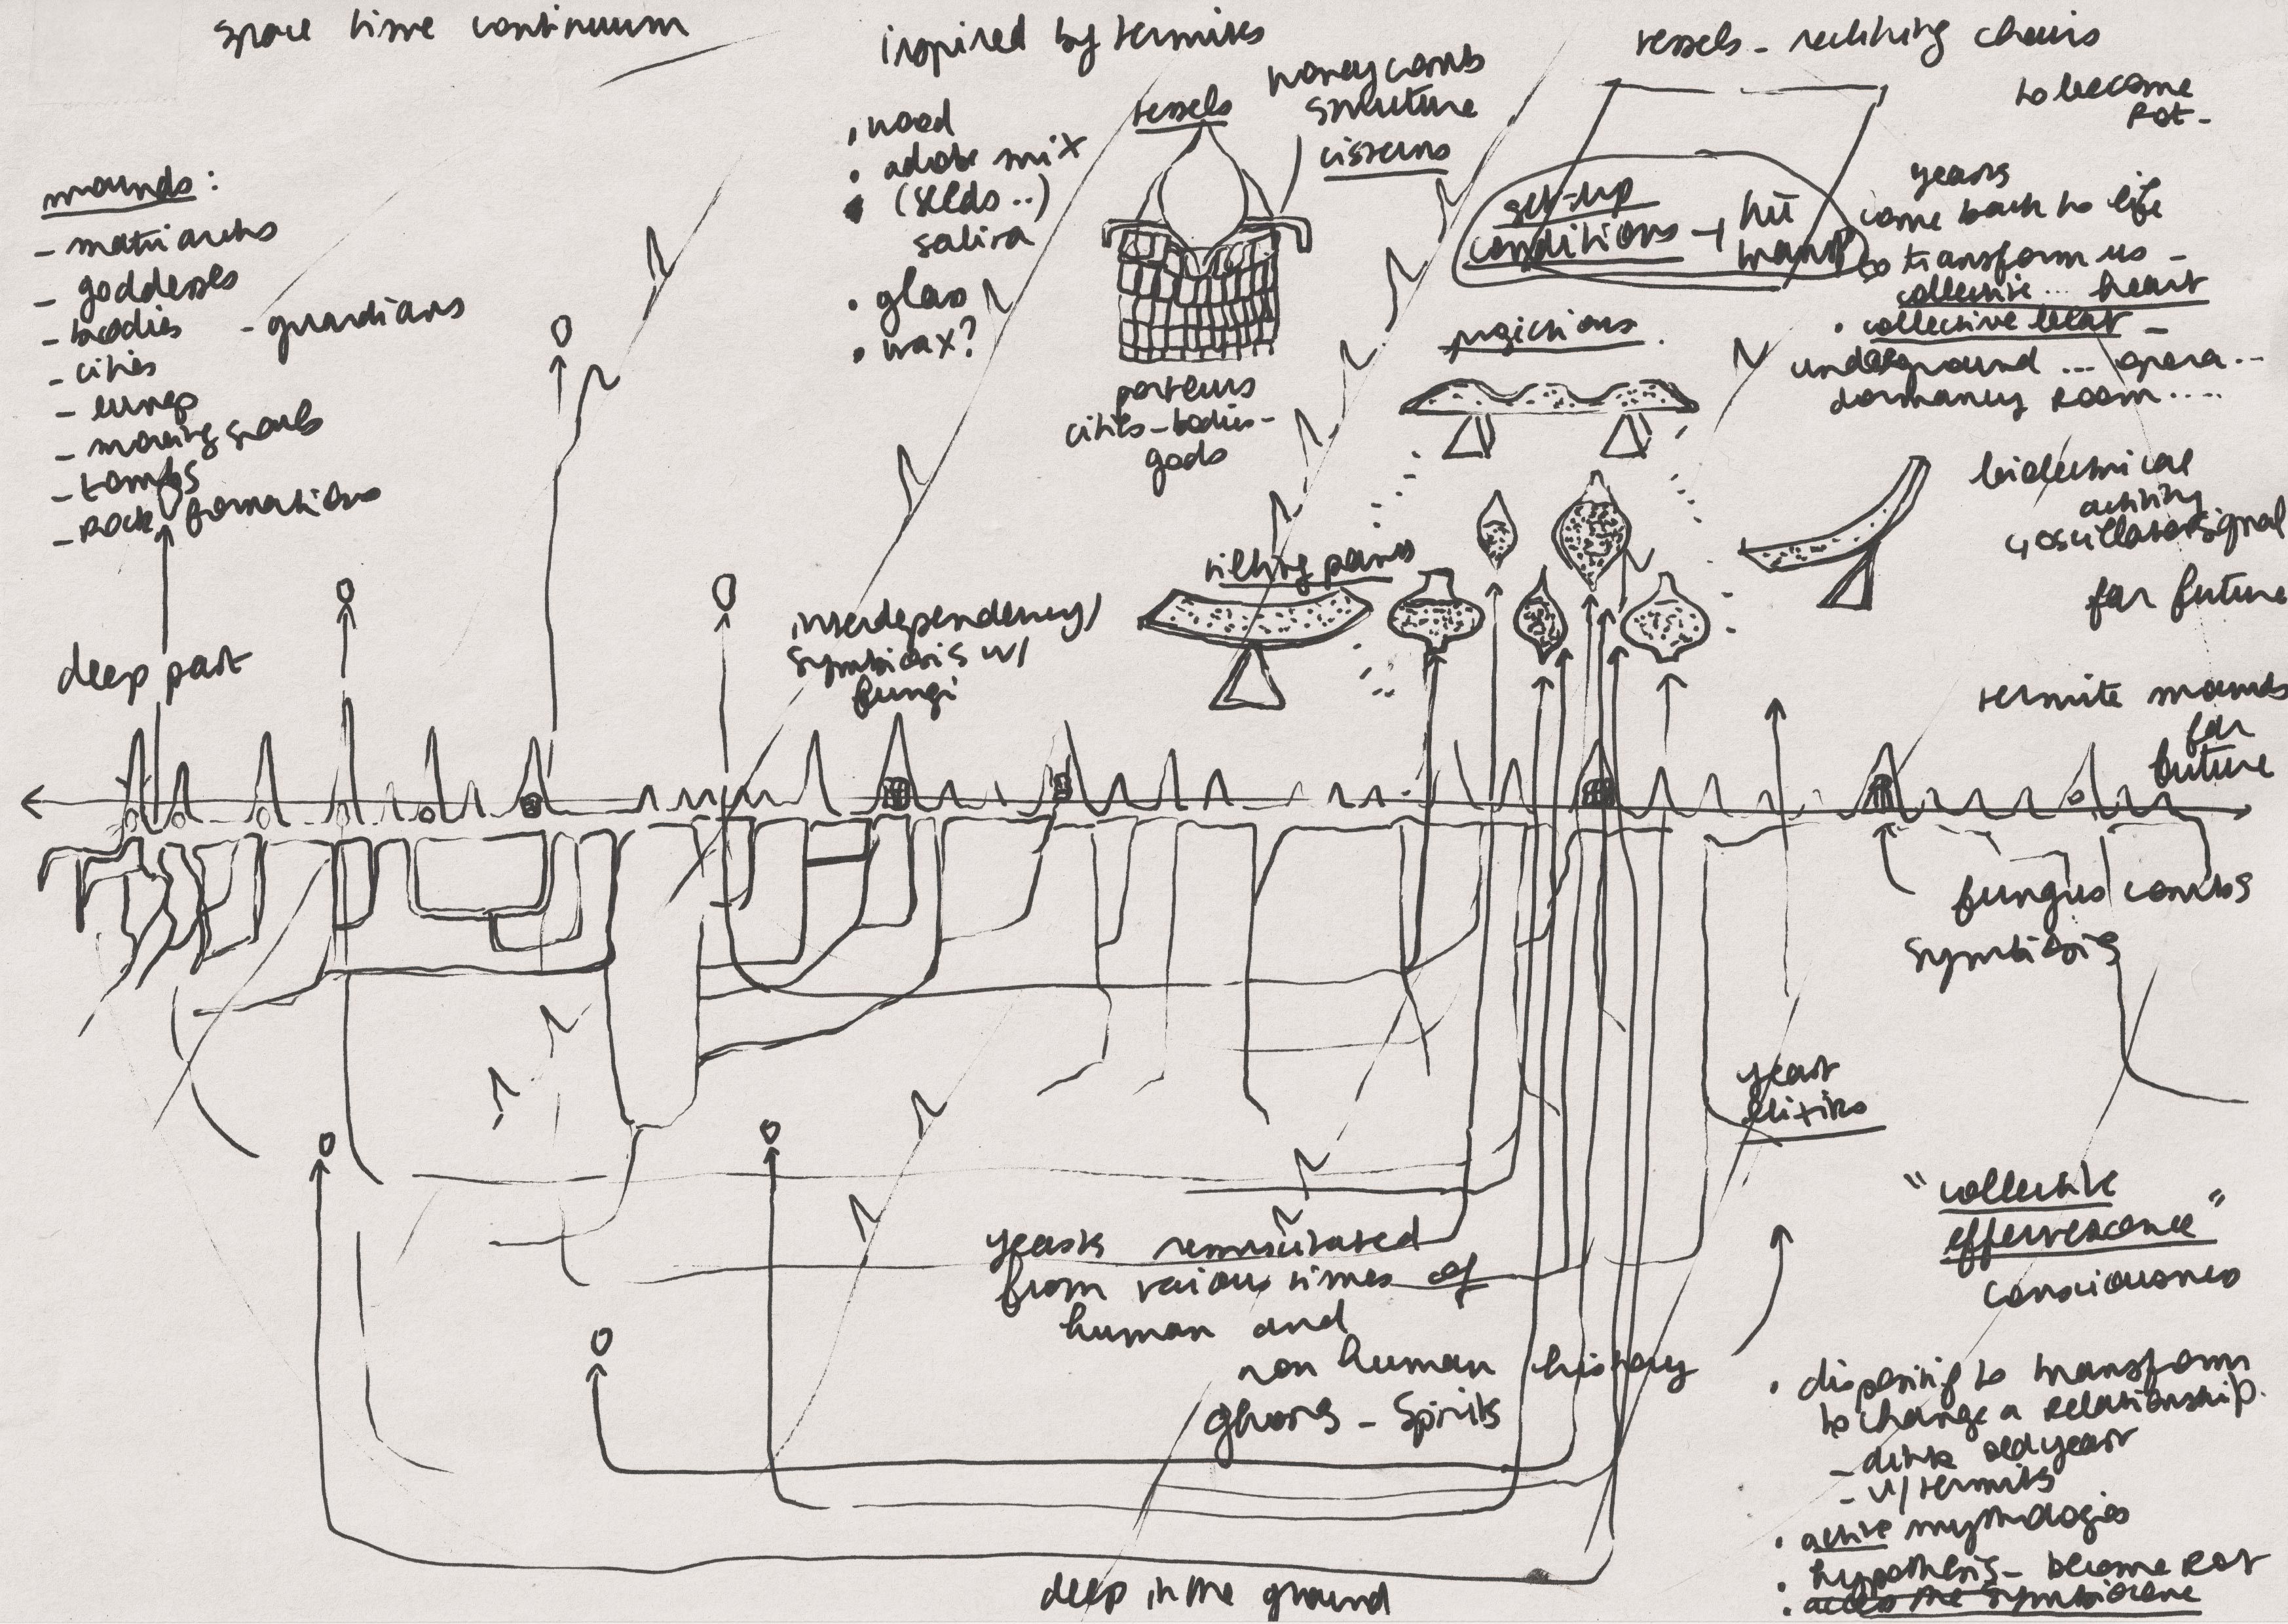 space time continuum
inspired by termites
vessels - reclining chairs
to become
rot -
mounds:
- matriarchs
- goddesses
- bodies
- guardians
- cities
- lungs
- moving gods
- tombs
- rock formations
• wood
• adobe mix
• (seeds ..)
saliva
• glass
• wax?
vessels
honeycomb
structure
cisterns
porteurs
cities - bodies -
gods
set-up
conditions →
yeasts
come back to life
to transform us -
collective ... heart
• collective beat -
underground ... opera ..
dormancy room ....
projections.
biochemical
activity
↳ oscillator signal
far future
tilting planes
interdependency/
symbiosis w/
fungi
deep past
termite mounds
far
future
fungus combs
symbiosis
yeast
elixirs
"collective
effervescence"
consciousness
yeasts resuscitated
from various times of
human and
non human history
ghosts - spirits
• disposing to transform
to change a relationship.
- drink old yeast
- w/ termites
• active mythologies
• hypothesis - become rot
• access the symbiocene
deep in the ground